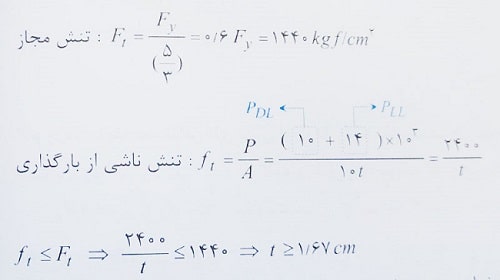 تنش مجاز : F_t = F_y / (۵/۳) = ۰/۶ F_y = ۱۴۴۰ kgf/cm^۲
P_DL P_LL
تنش ناشی از بارگذاری : f_t = P/A = ((۱۰ + ۱۴) × ۱۰^۳) / ۱۰t = ۲۴۰۰/t
f_t ≤ F_t ⇒ ۲۴۰۰/t ≤ ۱۴۴۰ ⇒ t ≥ ۱/۶۷ cm